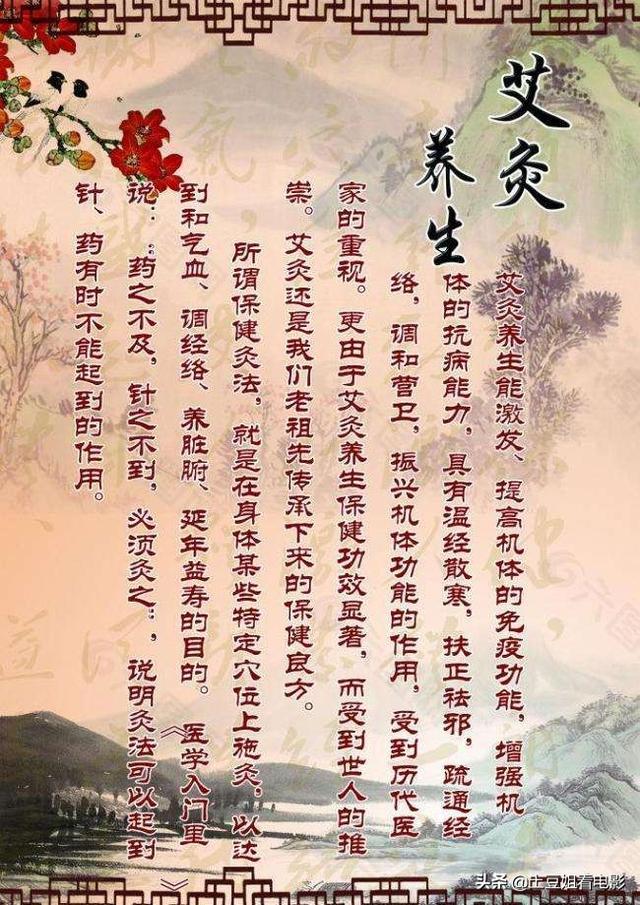 艾灸
养生
艾灸养生能激发、提高机体的免疫功能，增强机
体的抗病能力，具有温经散寒，扶正祛邪，疏通经
络，调和营卫，振兴机体功能的作用，受到历代医
家的重视。更由于艾灸养生保健功效显著，而受到世人的推
崇。艾灸还是我们老祖先传承下来的保健良方。
所谓保健灸法，就是在身体某些特定穴位上施灸，以达
到和气血、调经络、养脏腑、延年益寿的目的。《医学入门》里
说：“药之不及，针之不到，必须灸之”，说明灸法可以起到
针、药有时不能起到的作用。
头条 @庄豆姐看电影